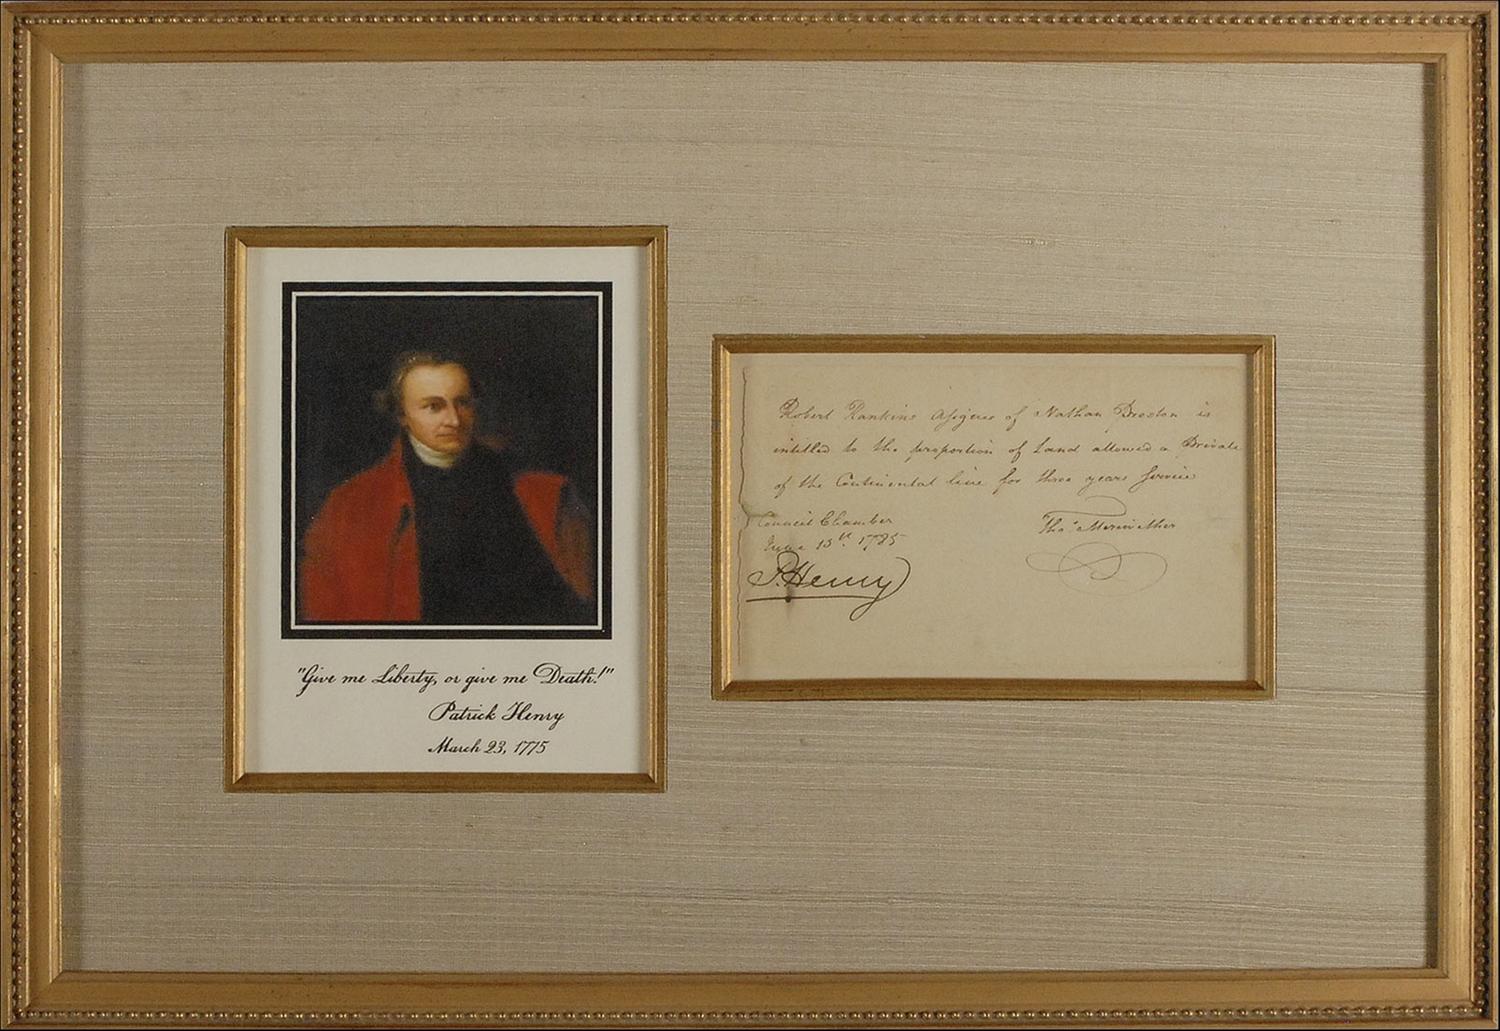 "Give me Liberty, or give me Death!"
Patrick Henry
March 23, 1775
Robert Rankins assignee of Nathan Breedon is
intitled to the proportion of Land allowed a Private
of the Continental line for three years Service
Council Chamber
June 15th. 1785
Thos Meriwether
P. Henry